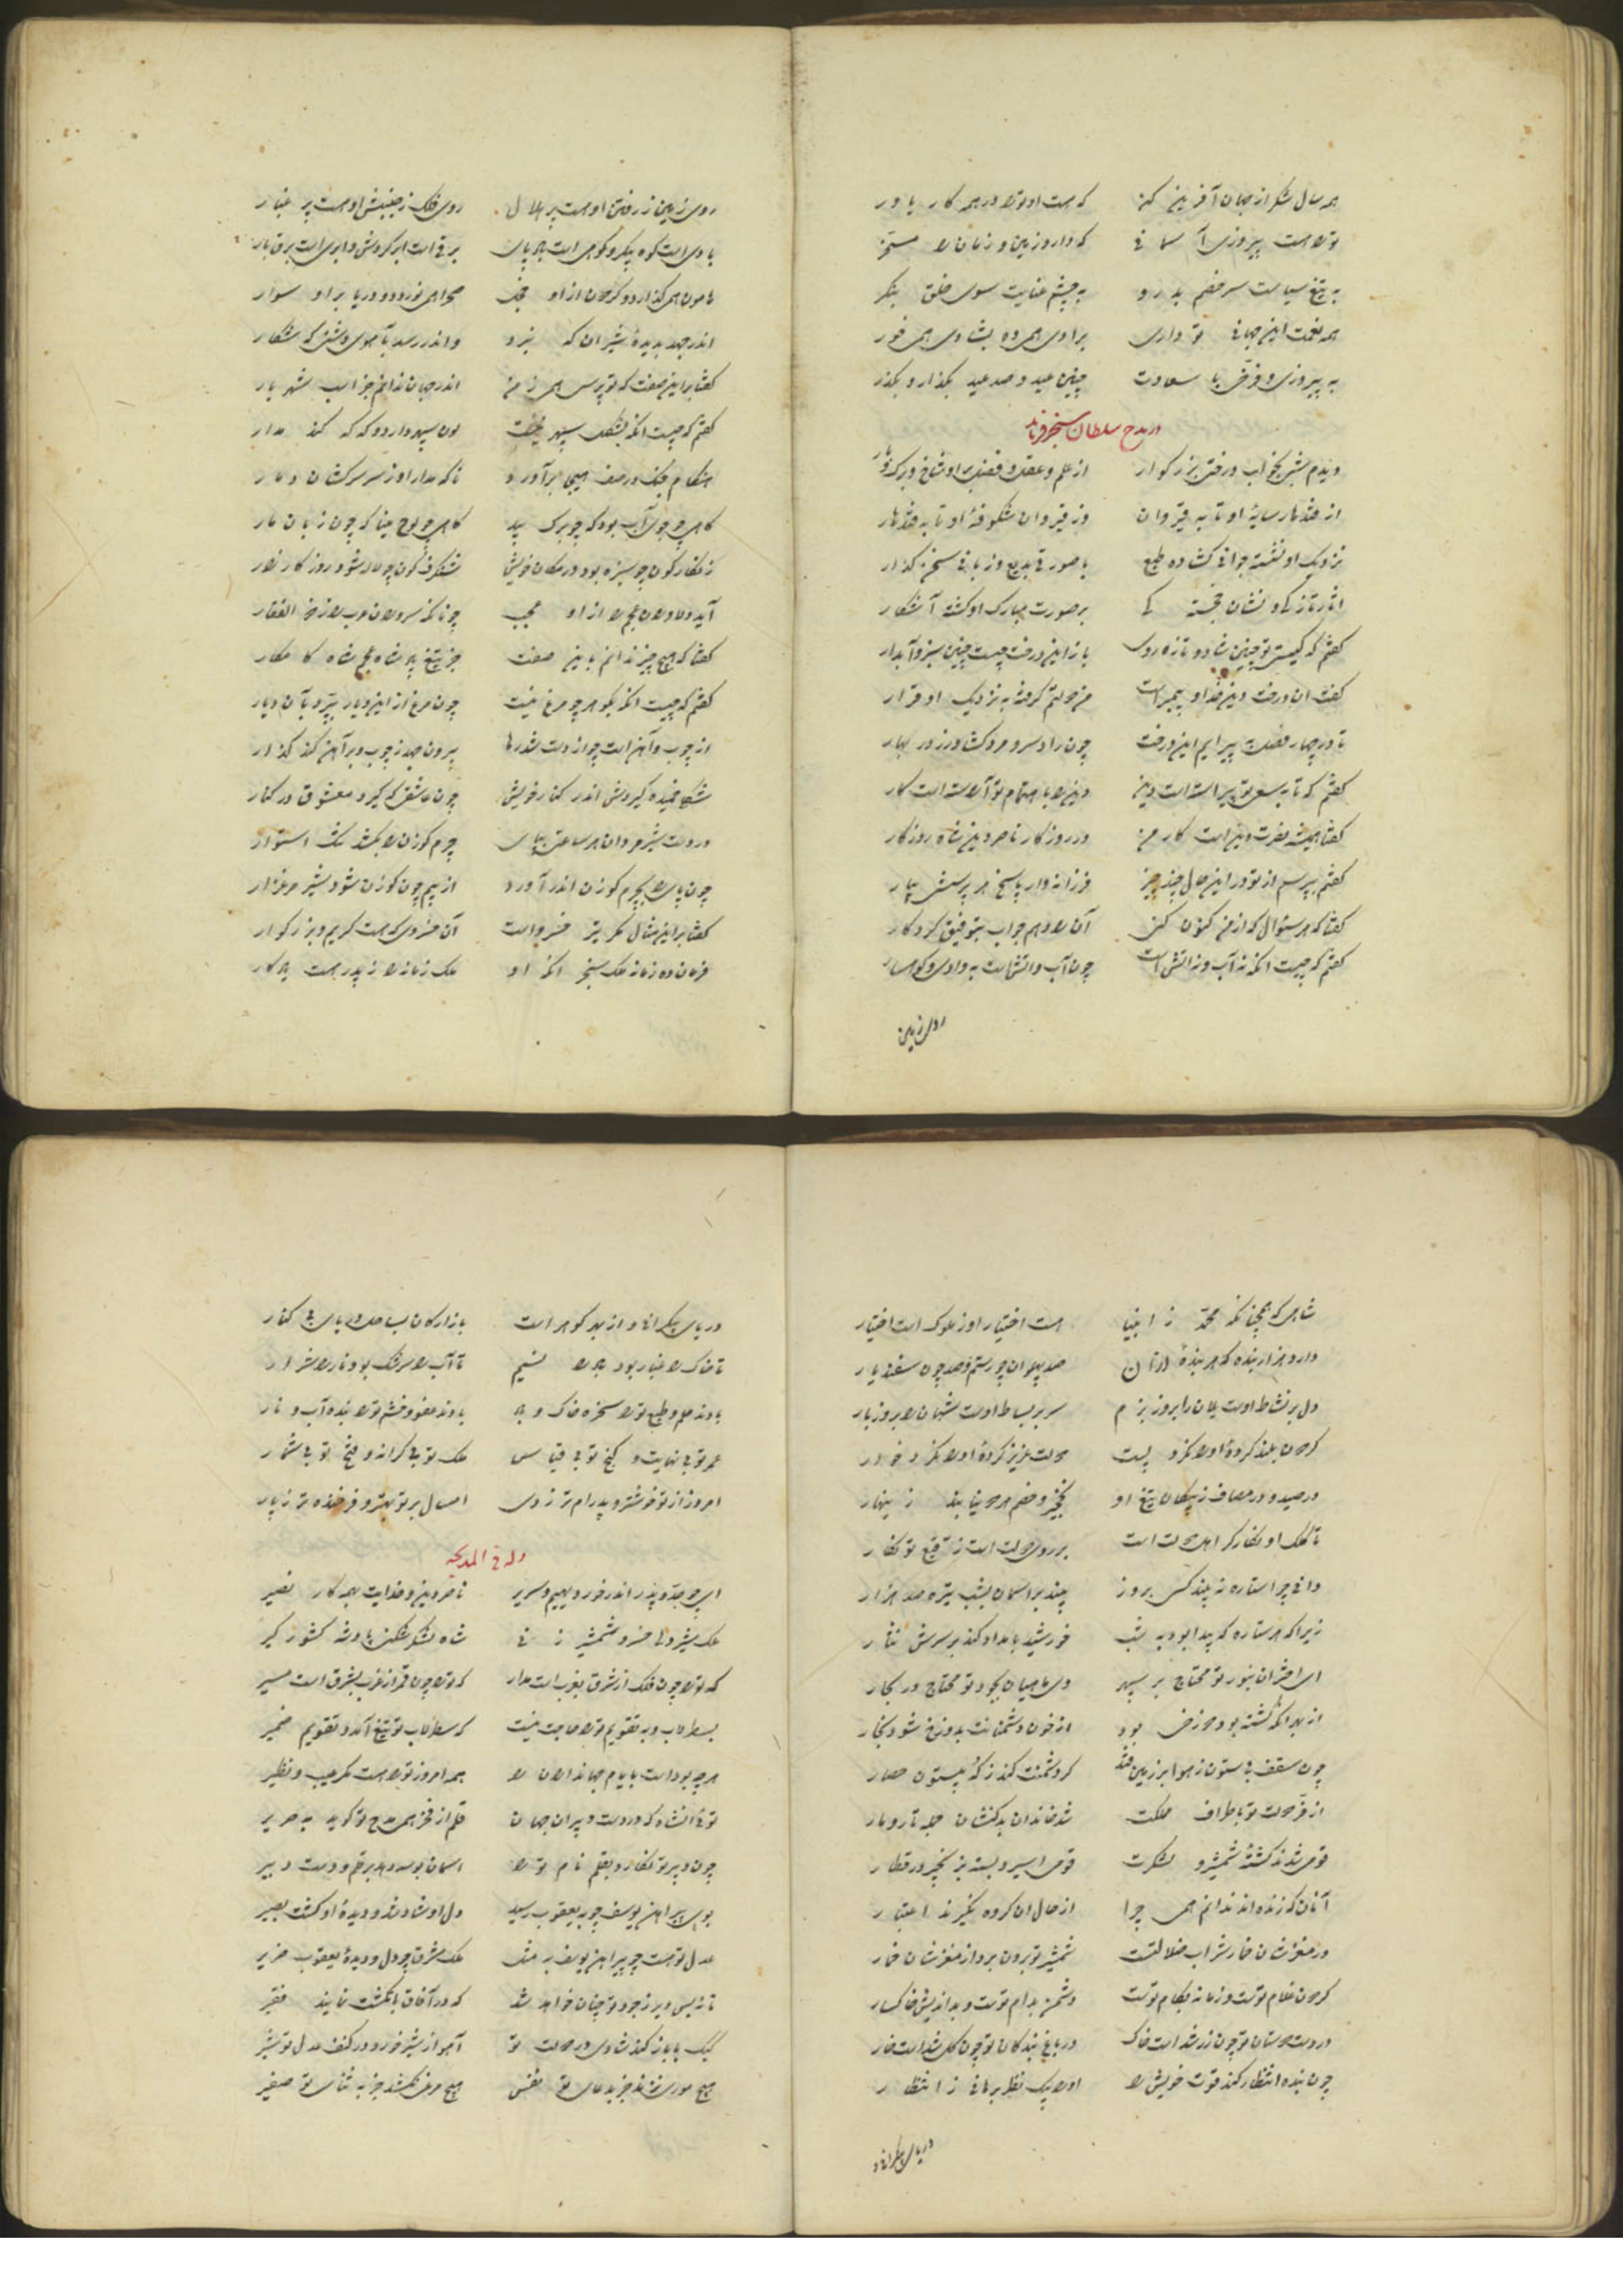 همه سال شکر از جهان آفرین کن که هست او ترا در همه کار یاور
تراست پیروزی آسمانی که دارد زمین و زمان را مسخر
به تیغ سیاست سر خصم بدرو به چشم عنایت سوی خلق بنگر
همه نعمت این جهانی تو داری برادی همی ده بشادی همی خور
به پیروزی و فرخی با سعادت چنین عید و صد عید بگذار و بگذر
در مدح سلطان سنجر فرماید
دیدم بشب بخواب درختی بزرگوار از علم و عقل و فضل بر او شاخ و برگ و بار
از قندهار سایه او تا به قیروان وز قیروان شکوفه او تا به قندهار
نزدیک او نشسته جوانی گشاده طبع با صورتی بدیع و زبانی سخن گذار
آثار تازگی و نشان خجستگی بر صورت مبارک او گشته آشکار
گفتم که کیستی تو چنین شاد و تازه روی باز این درخت چیست چنین سبز و آبدار
گفت ان درخت دین خدا و پیمبر است من دولتم گرفته به نزدیک او قرار
تا در چهار فصل بپیرایم این درخت چون راد سرو مرد کشاورز در بهار
گفتم که تا به سعی تو پیراسته است دین دین را باهتمام تو آراسته است کار
گفتا همیشه نصرت دین است کار من در روزگار ناصر دین شاه روزگار
گفتم بپرسم از تو در این حال چند چیز فرزانه وار پاسخ هر پرسشی بیار
گفتا که هر سئوال که از من کنون کنی آن را دهم جواب بتوفیق کردگار
گفتم که چیست انکه نه آب و نه اتش است چون آب و اتش است به وادی و کوهسار
روی زمین
روی زمین ز رفتن او هست پر هلال روی فلک ز جنبش او هست پر غبار
بادی است کوه پیکر و کوهی است باد پای برقی است ابر گردش و ابری است برق بار
هامون همی گذارد و گردون از او عجب صحرا همی نوردد و دریا بر او سوار
اندر جهد بدیده شیران که نبرد و اندر رسد بآهوی وحشی گه شکار
گفتا بر این صفت که تو پرسی همی ز من اندر جهان ندانم جز اسب شهریار
گفتم که چیست انکه بشکل سپهر نیست لون سپهر دارد و گه گه کند مدار
هنگام جنگ در صف هیجا برآورد ناگه مدار او ز سر سرکشان دمار
گاهی چو جوی آب بود گه چو برگ بید گاهی چو لوح مینا گه چون زبان مار
زنگار گون چو سبزه بود در مکان خویش شنگرف گون چو لاله شود روز کارزار
آید دلاوران عجم را از او عجب چونانکه سروران عرب را ز ذوالفقار
گفتا که هیچ چیز ندانم باین صفت جز تیغ پادشاه عجم شاه کامکار
گفتم که چیست انکه بگوهر چو مرغ نیست چون مرغ از این دیار بپرد بآن دیار
از چوب و آهن است چو از دست شد رها بیرون جهد ز چوب و بر آهن کند گذار
شکل خمیده گیردش اندر کنار خویش چون عاشقی که گیرد معشوق در کنار
در دست شیر مردان هر ساعتی بپای چرم گوزن را بکشد تنگ استوار
چون پای را بچرم گوزن اندر آورد از بیم چون گوزن شود شیر مرغزار
گفتا بر این مثال مگر تیر خسرو است آن خسروی که هست کریم و بزرگوار
فرمان ده زمانه ملک سنجر انکه او ملک زمانه را ز پدر هست یادگار
شاهی که همچنانکه محمد ز انبیا هست اختیار او ز ملوک است اختیار
دارد هزار بنده که هر بنده از آن صد پهلوان چو رستم و صد چون سفندیار
دل بر نشاط اوست یلان را بروز بزم سر بر بساط اوست شهان را بروز بار
گردون بلند کرده او را نکرد پست دولت عزیز کرده او را نکرد خوار
در صید و در مصاف ز پیکان تیغ او نخجیر و خصم هر دو نیابند زینهار
تا کلک او نگارگر اهل دولت است بر روی دولت است ز توقیع تو نگار
دانی چرا ستاره نبیند کسی بروز چندین بر اسمان بشب تیره صد هزار
زیرا که هر ستاره که پیدا بود به شب خورشید بامداد کند بر سرش نثار
ای اختران بنور تو محتاج بر سپهر وی ماهیان بجود تو محتاج در بحار
از بهر انکه کشته بود دوزخی بود از خون دشمنانت بدوزخ شود بخار
چون سقف بی ستون ز هوا بر زمین فتد گر دشمنت کند ز که بیستون حصار
از فر دولت تو باطراف مملکت شد خاندان بدکنشان جمله تار و مار
قومی شدند کشته شمشیر و لشکرت قومی اسیر و بسته بزنجیر در قطار
آنان که زنده اند ندانم همی چرا از حال ان گروه نگیرند اعتبار
در مغزشان خمار شراب ضلالتست شمشیر تو برون برد از مغزشان خمار
گردون غلام توست و زمانه بکام توست دشمن بدام توست و بداندیش خاکسار
در دست دوستان تو چون زر شد است خاک در باغ بندگان تو چون گل شد است خار
چون بنده انتظار کند قوت خویش را او را بیک نظر برهانی ز انتظار
دریای بیکرانه و
دریای بیکرانه و از بهر گوهر است بازارگان بساحل دریای بی کنار
تا خاک را غبار بود باد را نسیم تا آب را سرشک بود نار را شرار
بادند حلم و طبع ترا سخره خاک و باد بادند عفو و خشم ترا بنده آب و نار
عمر تو بی نهایت و گنج تو بی قیاس ملک تو بی کرانه و فتح تو بی شمار
امروز از تو خوشتر و پدرام تر ز دی امسال بر تو بهتر و فرخنده تر ز پار
وله فی المدیحه
ای چو جد و پدر اندر خور دیهیم و سریر ناصر دین و خدایت بهمه کار نصیر
ملک شیر دلی خسرو شمشیر زنی شاه لشکر شکنی پادشه کشور گیر
که ترا چون فلک از شرق بغرب است مدار که ترا چون قمر از غرب بشرق است مسیر
بسطرلاب و به تقویم ترا حاجت نیست که سطرلاب تو تیغ آمد و تقویم ضمیر
هر چه بود است بایام جهانداران را همه امروز ترا هست مگر عیب و نظیر
توئی انشاه که در دست دبیران جهان قلم از فخر همی مدح تو گوید به صریر
چون دبیر تو نگارد بقلم نام ترا اسمان بوسه دهد بر قلم و دست دبیر
بوی پیراهن یوسف چو به یعقوب رسید دل او شاد شد و دیده او گشت بصیر
عدل تو هست چو پیراهن یوسف به مثل ملک مشرق چو دل و دیده یعقوب ضریر
تا نه بس دیر ز جود تو چنان خواهد شد که در آفاق بانگشت نمایند فقیر
کبک با باز کند شادی در دولت تو آهو از شیر خورد در کنف عدل تو شیر
هیچ موری نزند جز بدعای تو نفس هیچ مرغی نکشد جز به ثنای تو صفیر